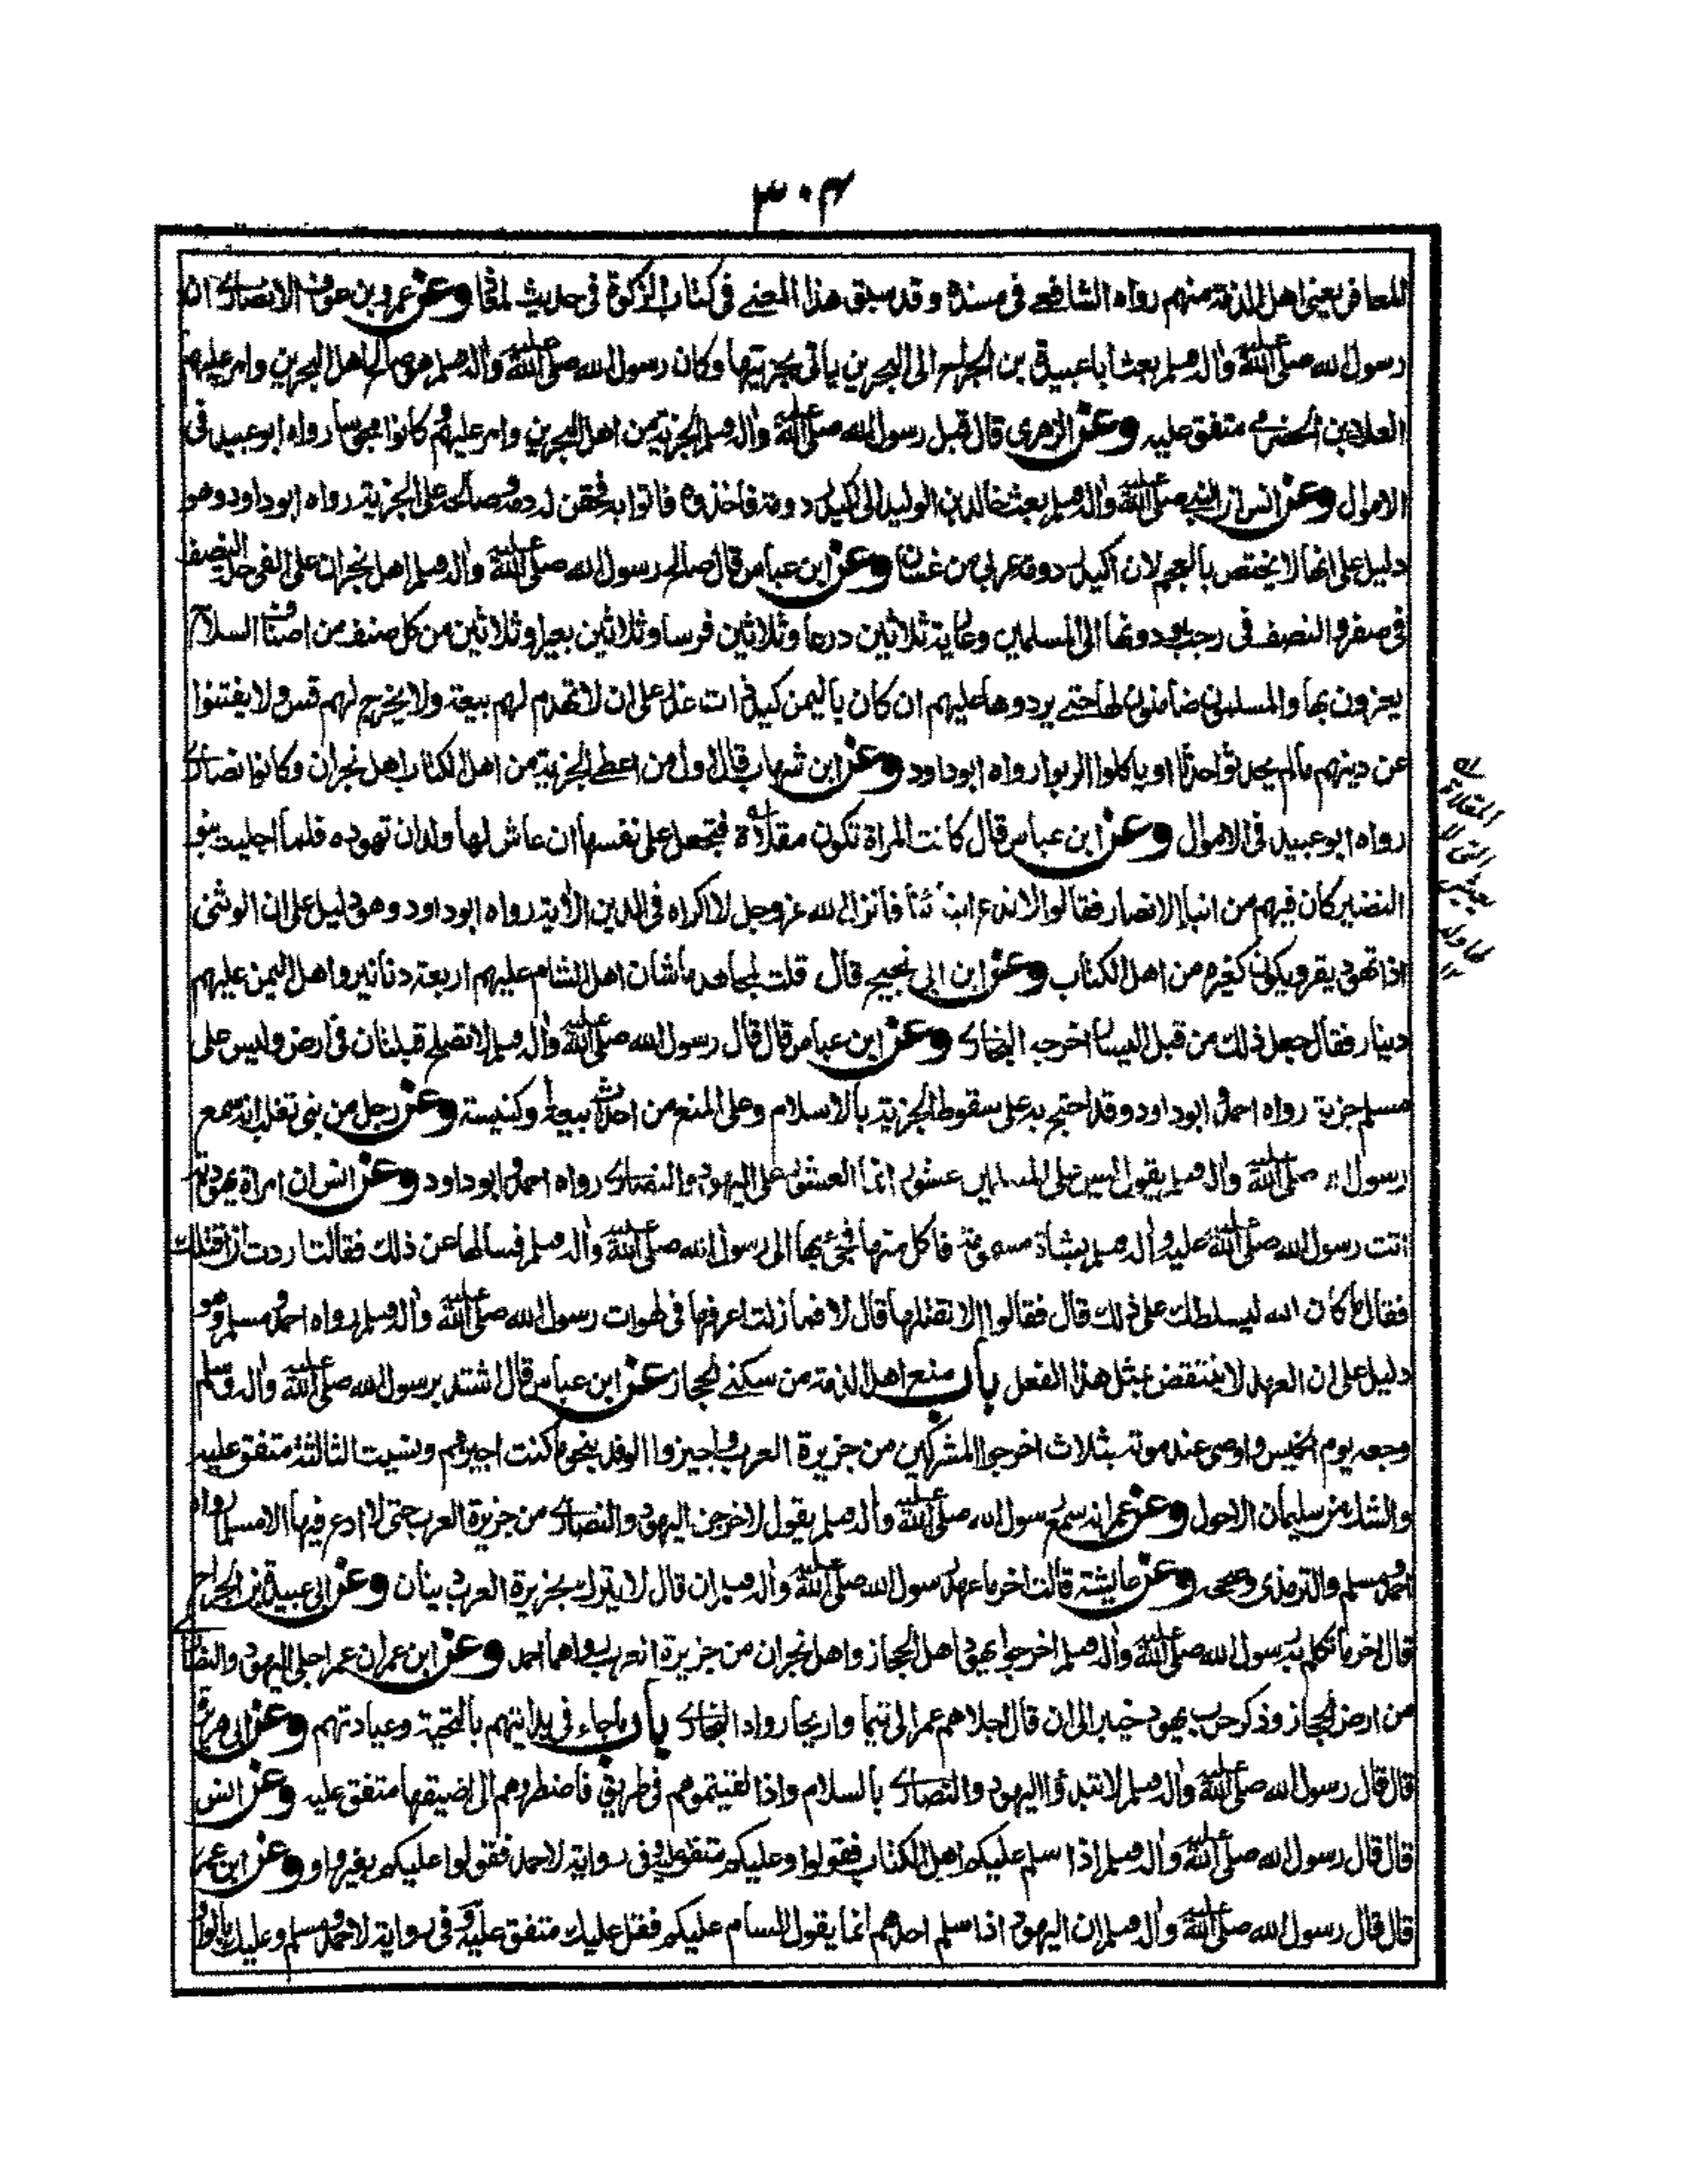 ٣٠٤
المعافر يعنى اهل الذمة منهم رواه الشافعى فى مسنده وقد سبق هذا المعنى فى كتاب الزكوة فى حديث لمعاذ وعن عمرو بن عوف الانصارى ان
رسول الله صلى الله عليه واله وسلم بعث ابا عبيدة بن الجراح الى البحرين ياتى بجزيتها وكان رسول الله صلى الله عليه واله وسلم هو صالح اهل البحرين وامر عليهم
العلاء بن الحضرمى متفق عليه وعن الزهرى قال قبل رسول الله صلى الله عليه واله وسلم الجزية من اهل البحرين وامر عليهم وكانوا مجوسا رواه ابو عبيد فى
الاموال وعن انس ان النبى صلى الله عليه واله وسلم بعث خالد بن الوليد الى اكيدر دومة فاخذوه فاتوا به فحقن له دمه وصالحه على الجزية رواه ابو داود وهو
دليل على انها لا يختص بالعجم لان اكيدر دومة عربى من غسان وعن ابن عباس قال صالح رسول الله صلى الله عليه واله وسلم اهل نجران على الفى حلة النصف
فى صفر والنصف فى رجب يؤدونها الى المسلمين وعارية ثلاثين درعا وثلاثين فرسا وثلاثين بعيرا وثلاثين من كل صنف من اصناف السلاح
يعزون بها والمسلمون ضامنون لها حتى يردوها عليهم ان كان باليمن كيد ذات غدر على ان لا تهدم لهم بيعة ولا يخرج لهم قس ولا يفتنوا
عن دينهم مالم يحدثوا حدثا او ياكلوا الربوا رواه ابو داود وعن ابن شهاب قال اول من اعطى الجزية من اهل الكتاب اهل نجران وكانوا نصارى
رواه ابو عبيد فى الاموال وعن ابن عباس قال كانت المراة تكون مقلاة فتجعل على نفسها ان عاش لها ولد ان تهوده فلما اجليت بنو
النضير كان فيهم من ابناء الانصار فقالوا لا ندع ابناءنا فانزل الله عز وجل لا اكراه فى الدين الاية رواه ابو داود وهو دليل على ان الوثنى
اذا تهود يقر ويكون كغيره من اهل الكتاب وعن ابن ابى نجيح قال قلت لمجاهد ما شان اهل الشام عليهم اربعة دنانير واهل اليمن عليهم
دينار فقال جعل ذلك من قبل اليسار اخرجه البخارى وعن ابن عباس قال قال رسول الله صلى الله عليه واله وسلم لا تصلح قبلتان فى ارض وليس على
مسلم جزية رواه احمد وابو داود وقد احتج به على سقوط الجزية بالاسلام وعلى المنع من احداث بيعة وكنيسة وعن رجل من بنى تغلب انه سمع
رسول الله صلى الله عليه واله وسلم يقول ليس على المسلمين عشور انما العشور على اليهود والنصارى رواه احمد وابو داود وعن انس ان امراة يهودية
اتت رسول الله صلى الله عليه واله وسلم بشاة مسمومة فاكل منها فجئ بها الى رسول الله صلى الله عليه واله وسلم فسالها عن ذلك فقالت اردت ان اقتلك
فقال ما كان الله ليسلطك على ذلك قال فقالوا الا نقتلها قال لا فما زلت اعرفها فى لهوات رسول الله صلى الله عليه واله وسلم رواه احمد ومسلم وهو
دليل على ان العهد لا ينتقض بمثل هذا الفعل باب منع اهل الذمة من سكنى الحجاز عن ابن عباس قال اشتد برسول الله صلى الله عليه واله وسلم
وجعه يوم الخميس واوصى عند موته بثلاث اخرجوا المشركين من جزيرة العرب واجيزوا الوفد بنحو ما كنت اجيزهم ونسيت الثالثة متفق عليه
والشك من سليمان الاحول وعن عمر انه سمع رسول الله صلى الله عليه واله وسلم يقول لاخرجن اليهود والنصارى من جزيرة العرب حتى لا ادع فيها الا مسلما رواه
احمد ومسلم والترمذى وصححه وعن عايشة قالت اخر ما عهد رسول الله صلى الله عليه واله وسلم ان قال لا يترك بجزيرة العرب دينان وعن ابى عبيدة بن الجراح
قال اخر ما تكلم به رسول الله صلى الله عليه واله وسلم اخرجوا يهود اهل الحجاز واهل نجران من جزيرة العرب رواهما احمد وعن ابن عمر ان عمر اجلى اليهود والنصارى
من ارض الحجاز وذكر حرب يهود خيبر الى ان قال اجلاهم عمر الى تيما واريحا رواه البخارى باب ما جاء فى بدايتهم بالتحية وعيادتهم وعن ابى هريرة
قال قال رسول الله صلى الله عليه واله وسلم لا تبدؤا اليهود والنصارى بالسلام واذا لقيتموهم فى طريق فاضطروهم الى اضيقها متفق عليه وعن انس
قال قال رسول الله صلى الله عليه واله وسلم اذا سلم عليكم اهل الكتاب فقولوا وعليكم متفق عليه وفى رواية لاحمد فقولوا عليكم بغير واو وعن ابن عمر
قال قال رسول الله صلى الله عليه واله وسلم ان اليهود اذا سلم احدهم انما يقول السام عليكم فقل عليك متفق عليه وفى رواية لاحمد ومسلم وعليك بالواو
المقلاة
التى لا
يعيش
لها ولد